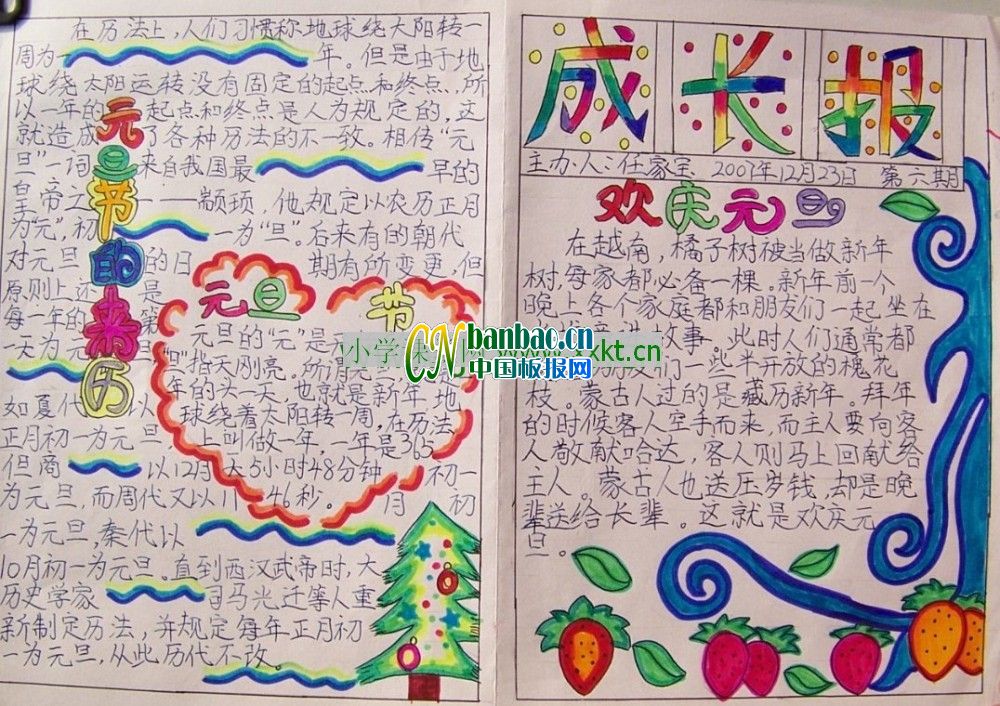 在历法上，人们习惯称地球绕太阳转一
周为一年。但是由于地
球绕太阳运转没有固定的起点和终点，所
以一年的起点和终点是人为规定的，这
就造成了各种历法的不一致。相传“元
旦”一词来自我国最早的
皇帝之一——颛顼，他规定以农历正月
为“元”，初一为“旦”。后来有的朝代
对元旦的日期有所变更，但
原则上还是
每一年的第
一天为元旦
如夏代以
正月初一为元旦
但商以12月初一
为元旦，而周代又以11月初
一为元旦，秦代以
10月初一为元旦。直到西汉武帝时，大
历史学家司马光迁等人重
新制定历法，并规定每年正月初
一为元旦，从此历代不改。
元旦节的来历
元旦节
元旦的“元”是
“旦”指天刚亮
年的头一天。也就是新年，地
球绕着太阳转一周，在历法
上叫做一年，一年是365
天5小时48分钟
46秒。
成长报
主办人：任家宝 2007年12月23日 第六期
欢庆元旦
在越南，橘子树被当做新年
树，每家都必备一棵。新年前一个
晚上各个家庭都和朋友们一起坐在
故事，此时人们通常都
一些半开放的槐花
枝。蒙古人过的是藏历新年。拜年
的时候客人空手而来，而主人要向客
人敬献哈达，客人则马上回献给
主人。蒙古人也送压岁钱，却是晚
辈送给长辈。这就是欢庆元
旦。
小学课 www.xxkt.cn
CN banbao.cn
中国板报网